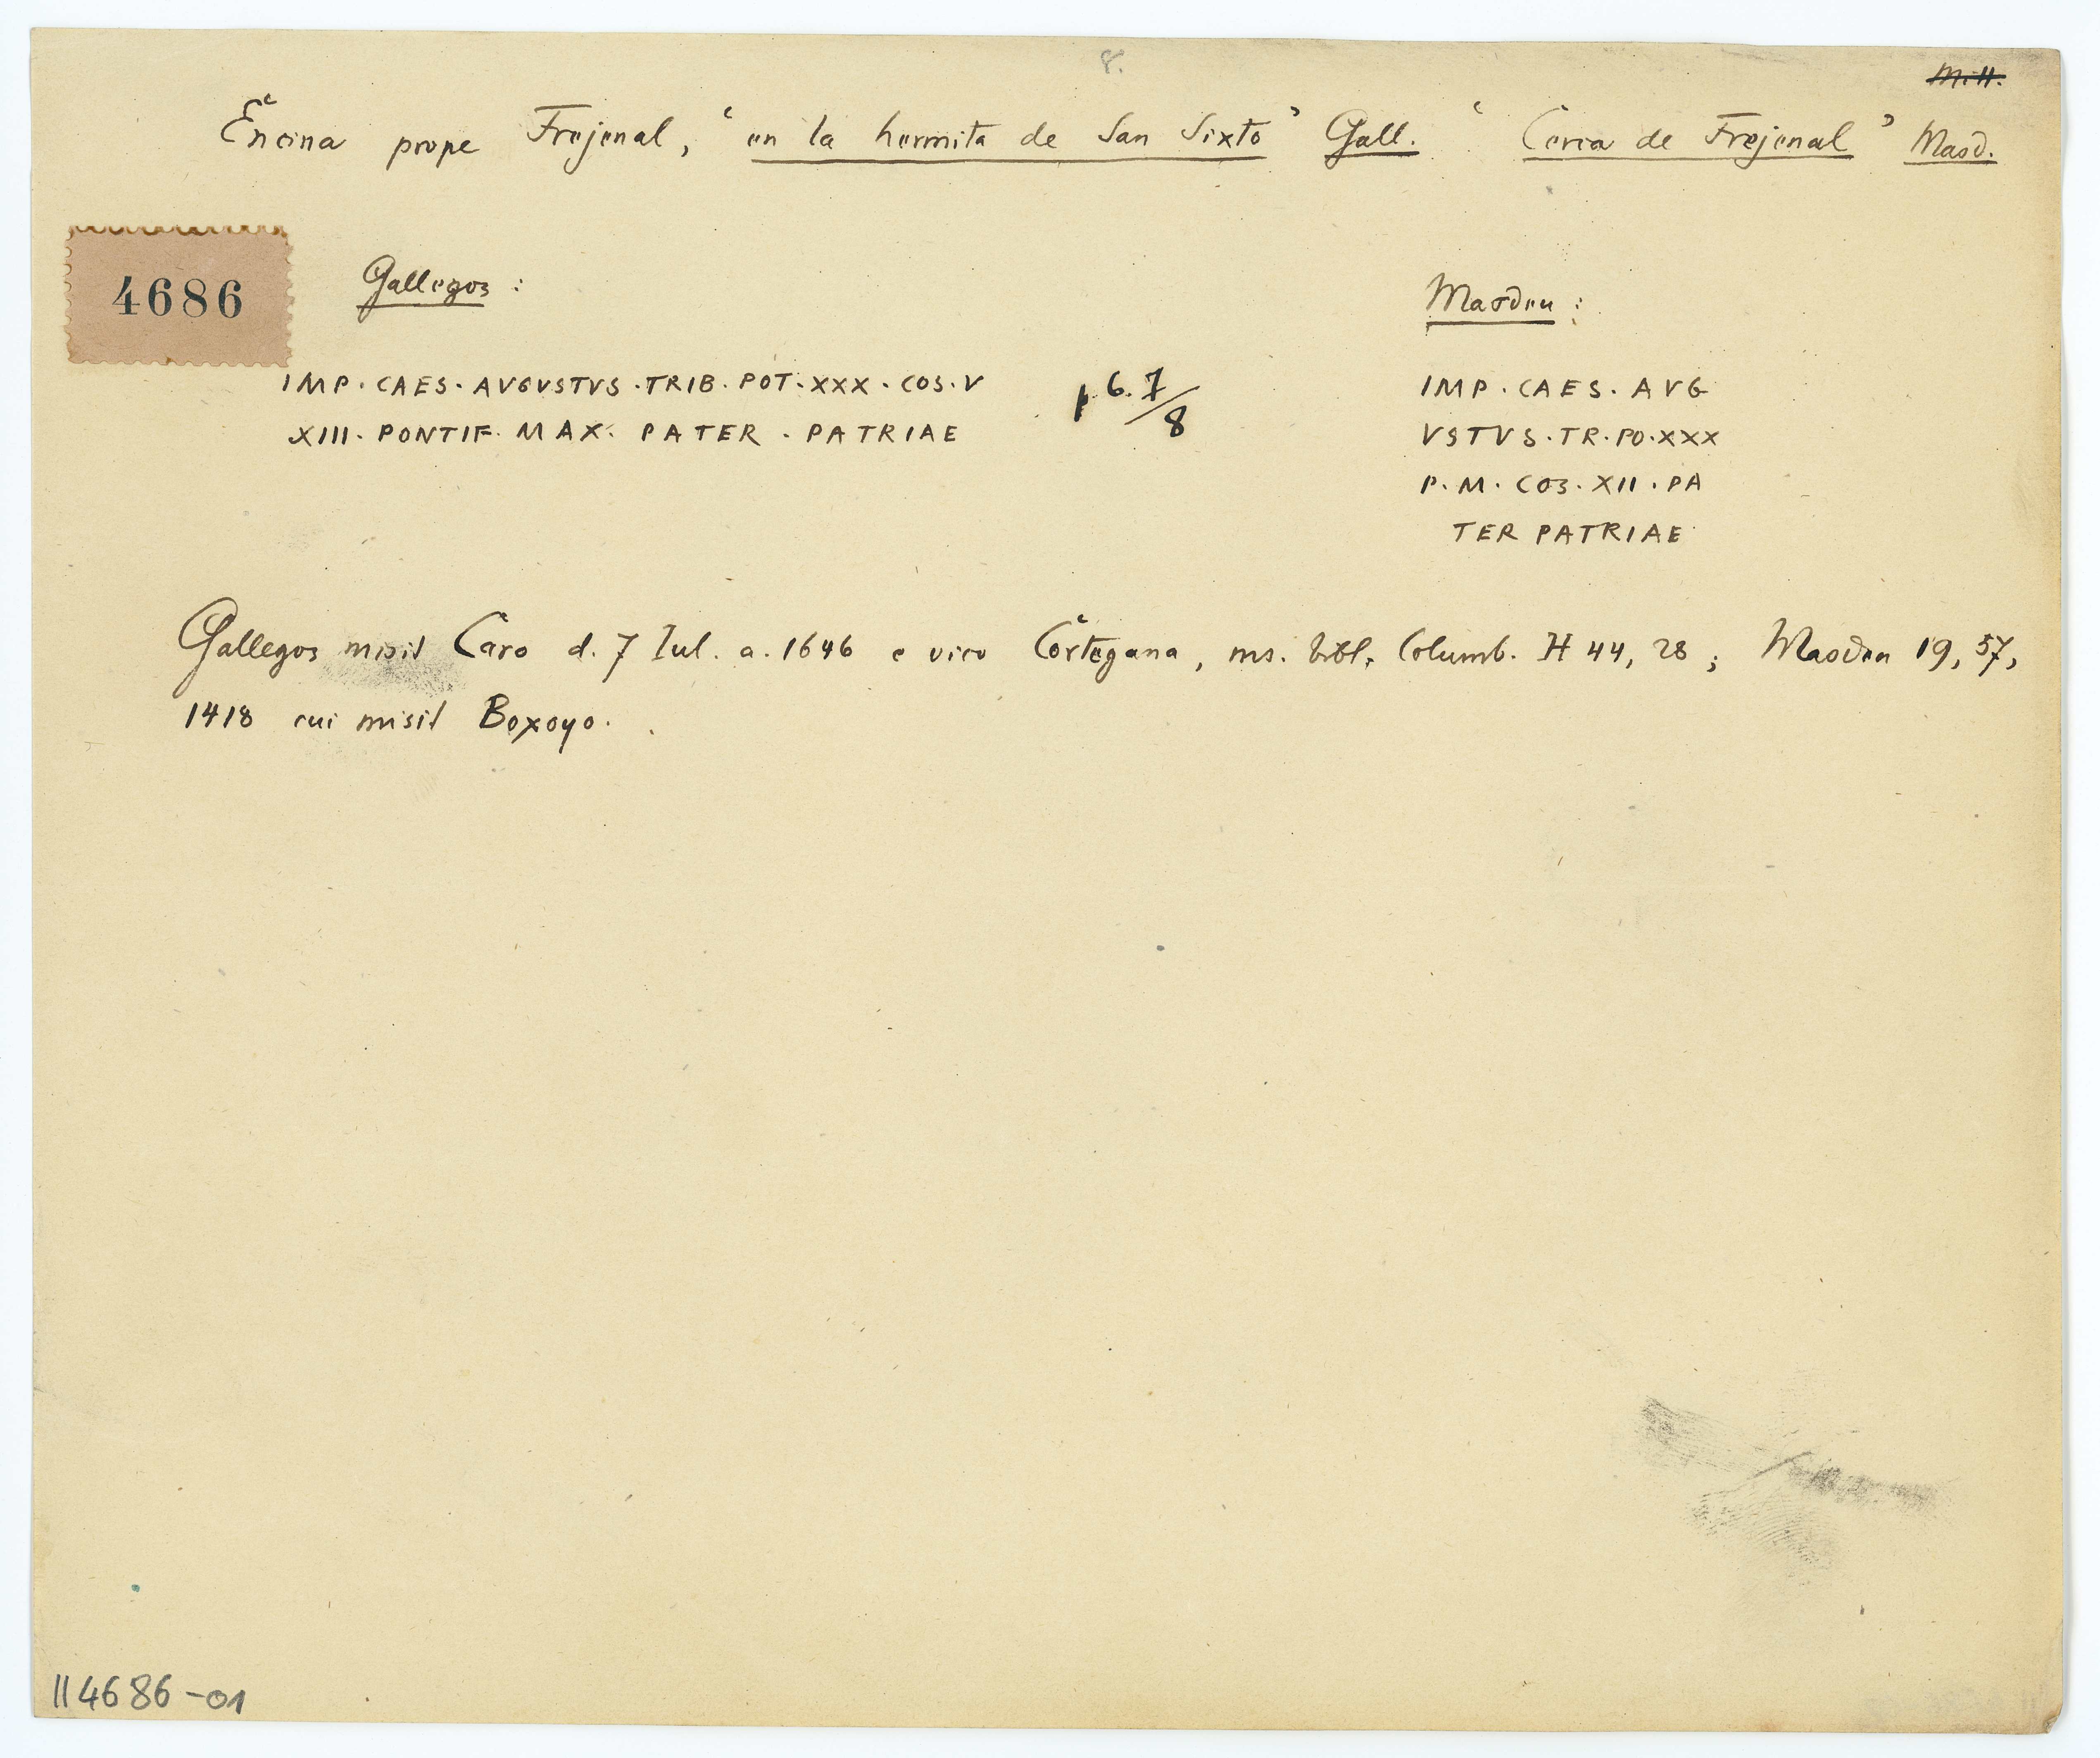 8.
M.H.
Encina prope Frejenal, “en la hermita de San Sixto” Gall. “Cerca de Frejenal” Masd.
4686
Gallegos :
IMP. CAES. AVGVSTVS. TRIB. POT. XXX. COS. V
XIII. PONTIF. MAX. PATER. PATRIAE
p. 6. 7/8
Masdeu :
IMP. CAES. AVG
VSTVS. TR. PO. XXX
P. M. COS. XII. PA
TER PATRIAE
Gallegos misit Caro d. 7 Iul. a. 1646 e vico Cortegana, ms. bibl. Columb. H 44, 28; Masdeu 19, 57,
1418 cui misit Boxoyo.
II 4686-01